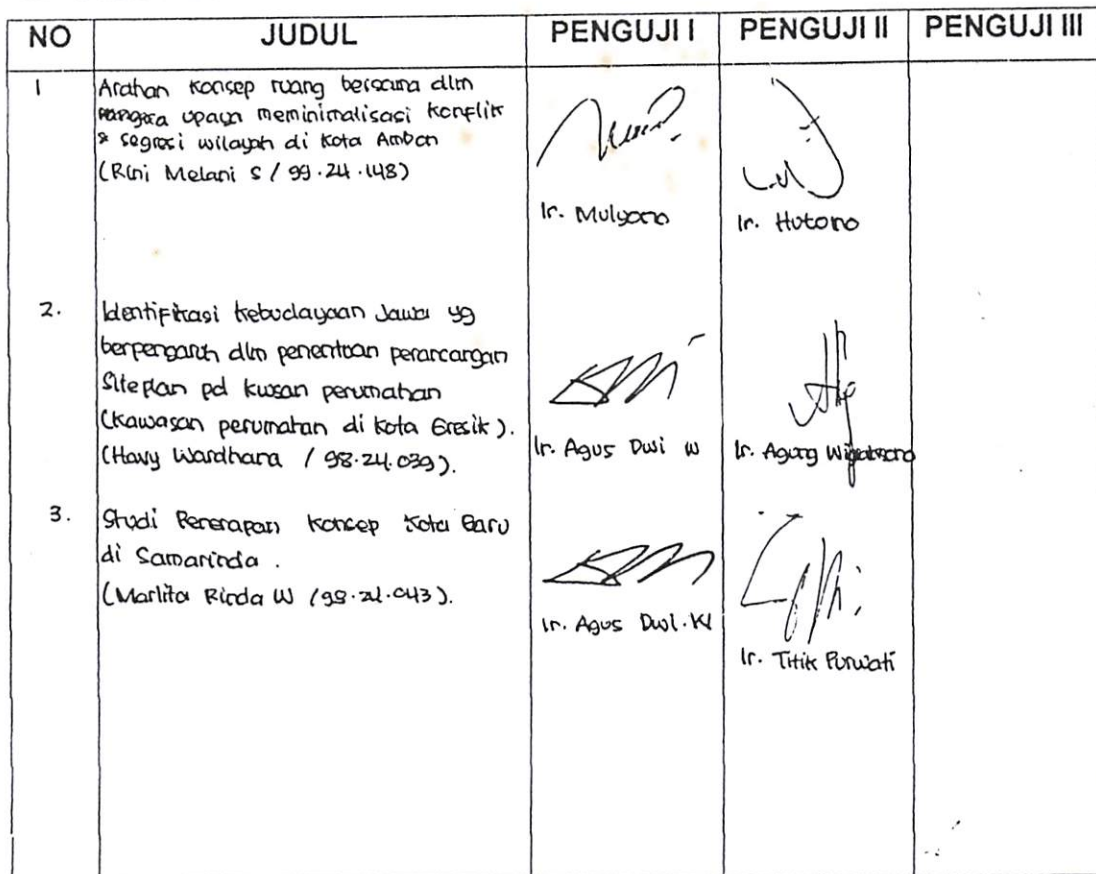 NO JUDUL PENGUJI I PENGUJI II PENGUJI III
1 Arahan konsep ruang bersama dlm
rangka upaya meminimalisasi konflik
& segresi wilayah di Kota Ambon
(Rini Melani S / 99.24.148)
Ir. Mulyono Ir. Hutomo
2. Identifikasi kebudayaan Jawa yg
berpengaruh dlm penentuan perancangan
Siteplan pd kwsan perumahan
(Kawasan perumahan di Kota Gresik).
(Havy Wardhana / 98.24.039).
Ir. Agus Dwi W Ir. Agung
3. Studi Penerapan Konsep Kota Baru
di Samarinda.
(Marlita Rinda W / 98.24.043).
Ir. Agus Dwi. W
Ir. Titik Purwati